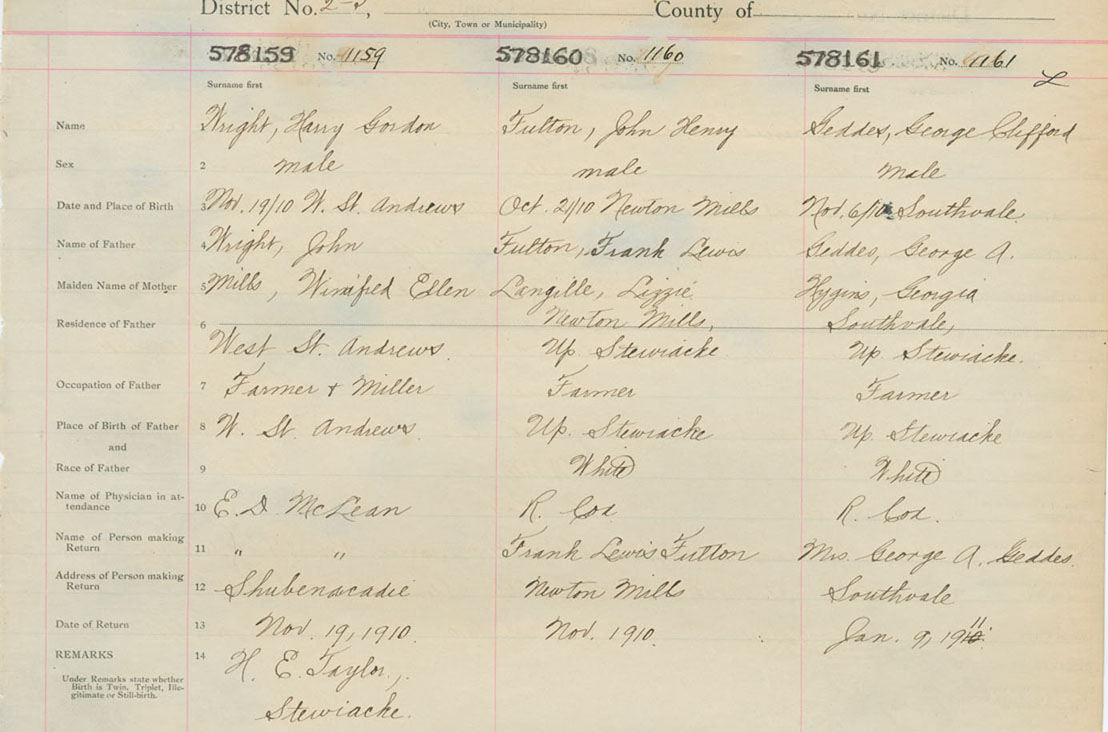 District No. 2-5, County of
(City, Town or Municipality)
578159 No. 1159 578160 No. 1160 578161 No. 1161
Surname first Surname first Surname first
Name Wright, Harry Gordon Fulton, John Henry Geddes, George Clifford
Sex 2 male male male
Date and Place of Birth 3 Nov. 19/10 W. St. Andrews Oct. 21/10 Newton Mills Nov. 6/10 Southvale
Name of Father 4 Wright, John Fulton, Frank Lewis Geddes, George A.
Maiden Name of Mother 5 Mills, Winifred Ellen Langille, Lizzie Hggins, Georgia
Residence of Father 6 Newton Mills, Southvale,
West St. Andrews. Up. Stewiacke Up. Stewiacke.
Occupation of Father 7 Farmer + Miller Farmer Farmer
Place of Birth of Father 8 W. St. Andrews Up. Stewiacke Up. Stewiacke
and
Race of Father 9 White White
Name of Physician in at- 10 E. D. McLean R. Cox R. Cox.
tendance
Name of Person making 11 " " Frank Lewis Fulton Mrs. George A. Geddes.
Return
Address of Person making 12 Shubenacadie Newton Mills Southvale
Return
Date of Return 13 Nov. 19, 1910. Nov. 1910. Jan. 9, 1911
REMARKS 14 H. E. Taylor,
Under Remarks state whether
Birth is Twin, Triplet, Ille-
gitimate or Still-birth.
Stewiacke.